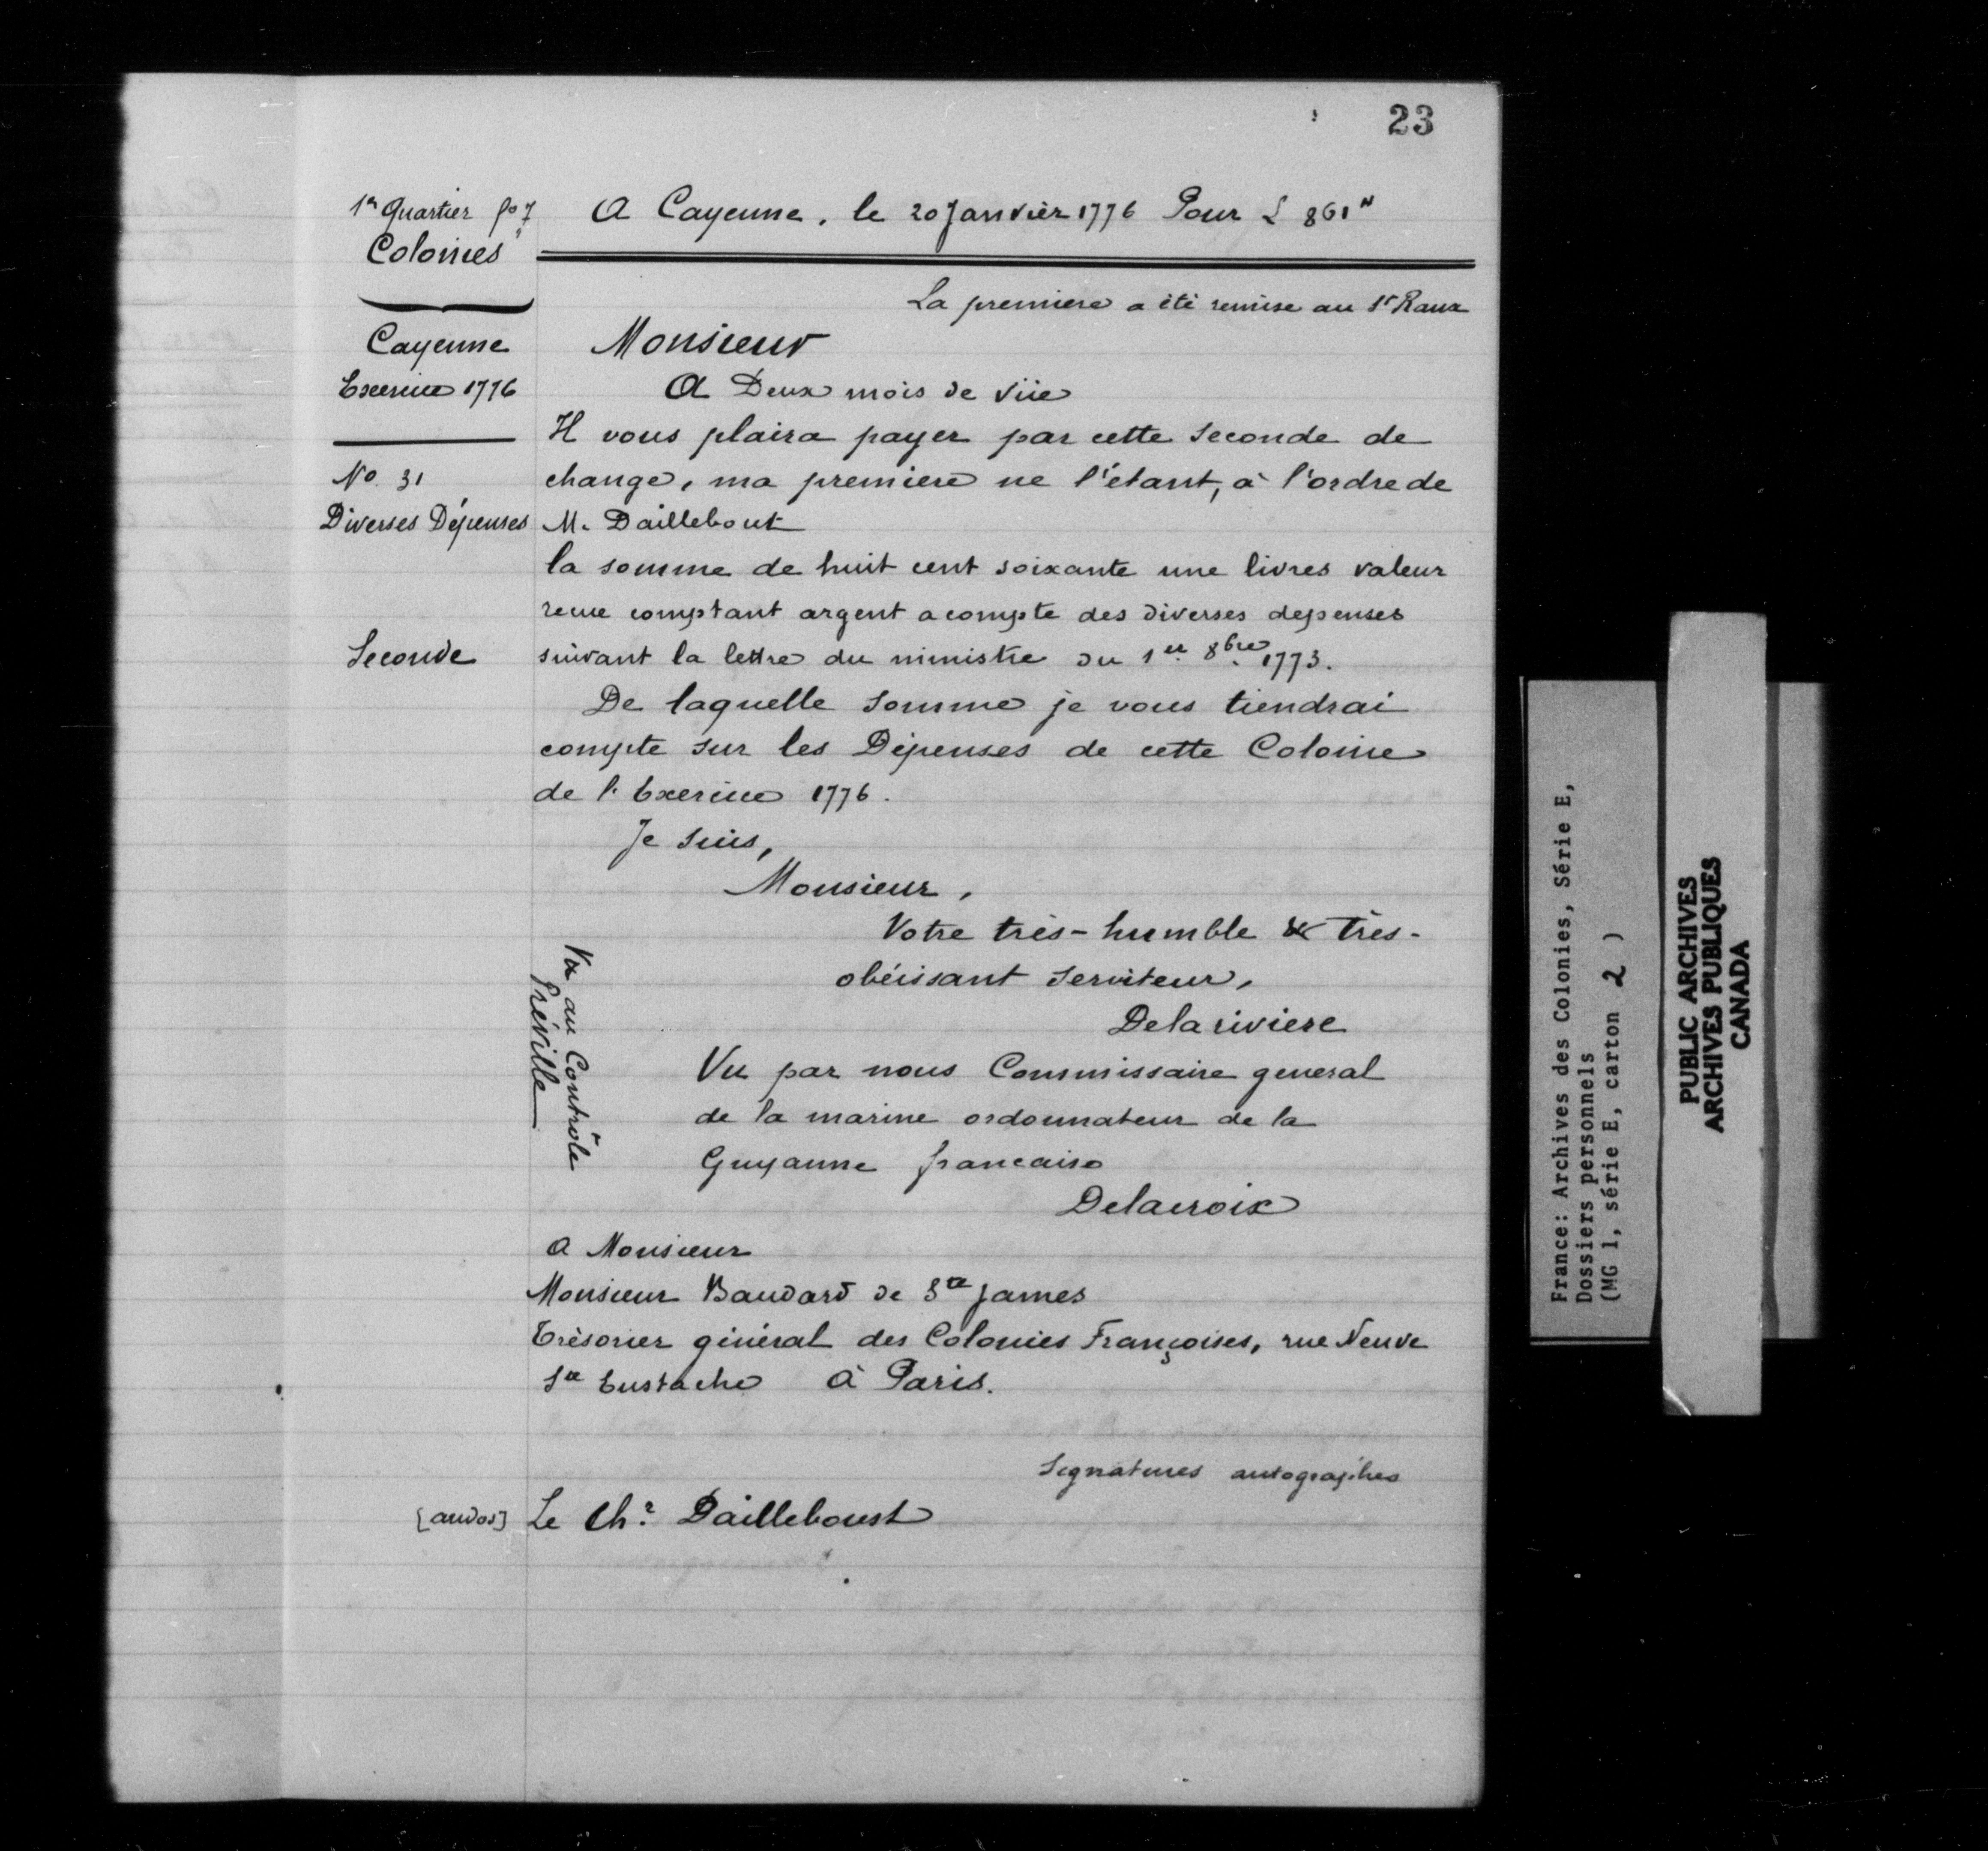 23
1er Quartier fo 7
Colonies
Cayenne
Exercice 1776
No. 31
Diverses Dépenses
Seconde
A Cayenne, le 20 Janvier 1776 Pour L 861"
La premiere a été remise au Sr Raux
Monsieur
A Deux mois de vüe
Il vous plaira payer par cette seconde de
change, ma premiere ne l'étant, à l'ordre de
M. Daillebout
la somme de huit cent soixante une livres valeur
recue comptant argent a compte des diverses depenses
suivant la lettre du ministre du 1er 8bre 1773.
De laquelle somme je vous tiendrai
compte sur les Dépenses de cette Colonie
de l'Exercice 1776.
Je suis,
Monsieur,
Votre très-humble & très-
obéissant serviteur,
Delariviere
Vu au Contrôle
Préville
Vu par nous Commissaire general
de la marine ordonnateur de la
Guyanne francaise
Delacroix
A Monsieur
Monsieur Baudard de Ste James
Trésorier général des Colonies Françoises, rue Neuve
St Eustache à Paris.
Signatures autographes
[au dos] Le Chr. Dailleboust
France: Archives des Colonies, Série E,
Dossiers personnels
(MG 1, série E, carton 2 )
PUBLIC ARCHIVES
ARCHIVES PUBLIQUES
CANADA